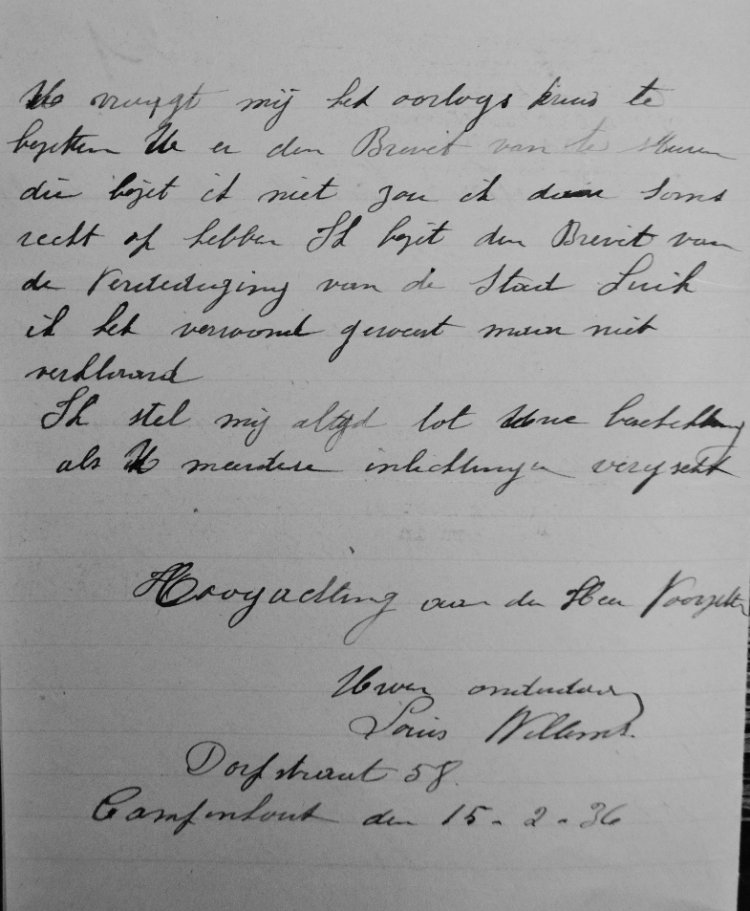 U vraagt mij het oorlogs kruis te
bezitten U er den Brevet van te sturen
die bezit ik niet zou ik daar soms
recht op hebben Ik bezit den Brevet van
de Verdediging van de Stad Luik
ik heb verwond geweest maar niet
verklaard
Ik stel mij altyd tot Uwe beschikking
als U meerdere inlichtingen verysekt
Hoogachting aan den Heer Voorzitter
Uwen onderdaan
Louis Willems.
Dorfstraat 58.
Campenhout den 15-2-36